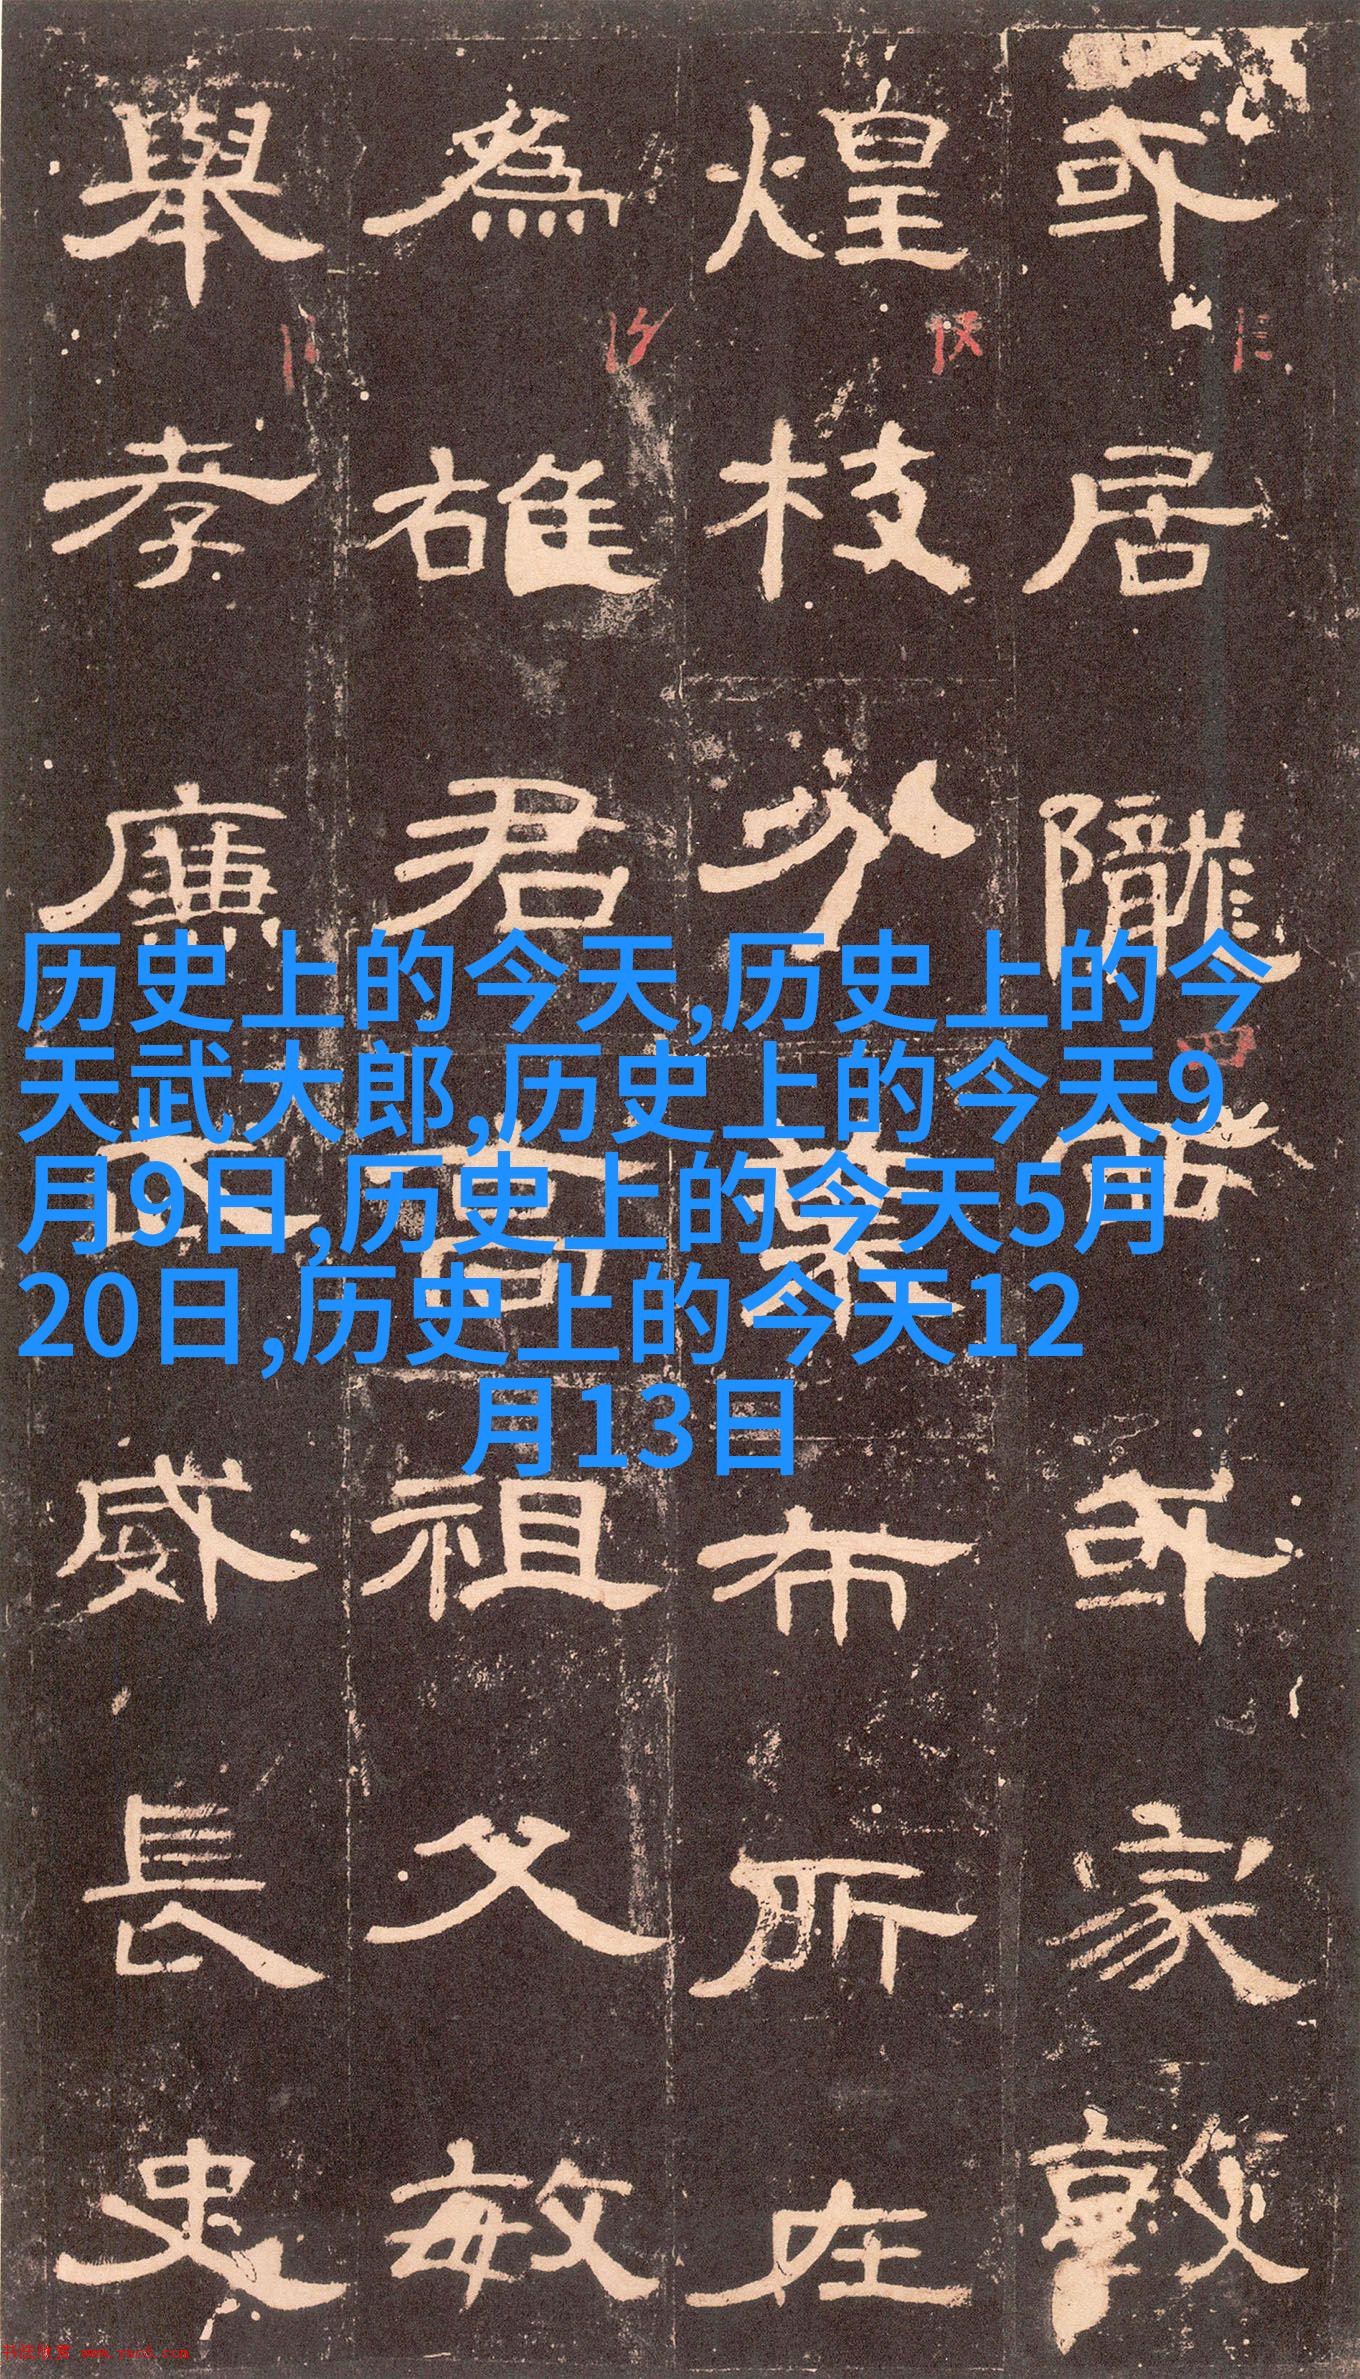 或居隴西或家敦
煌枝分葉布所在
為雄君高祖父敏
舉孝廉武威長史
历史上的今天,历史上的今
天武大郎,历史上的今天9
月9日,历史上的今天5月
20日,历史上的今天12
月13日
书法欣赏 www.yac8.com